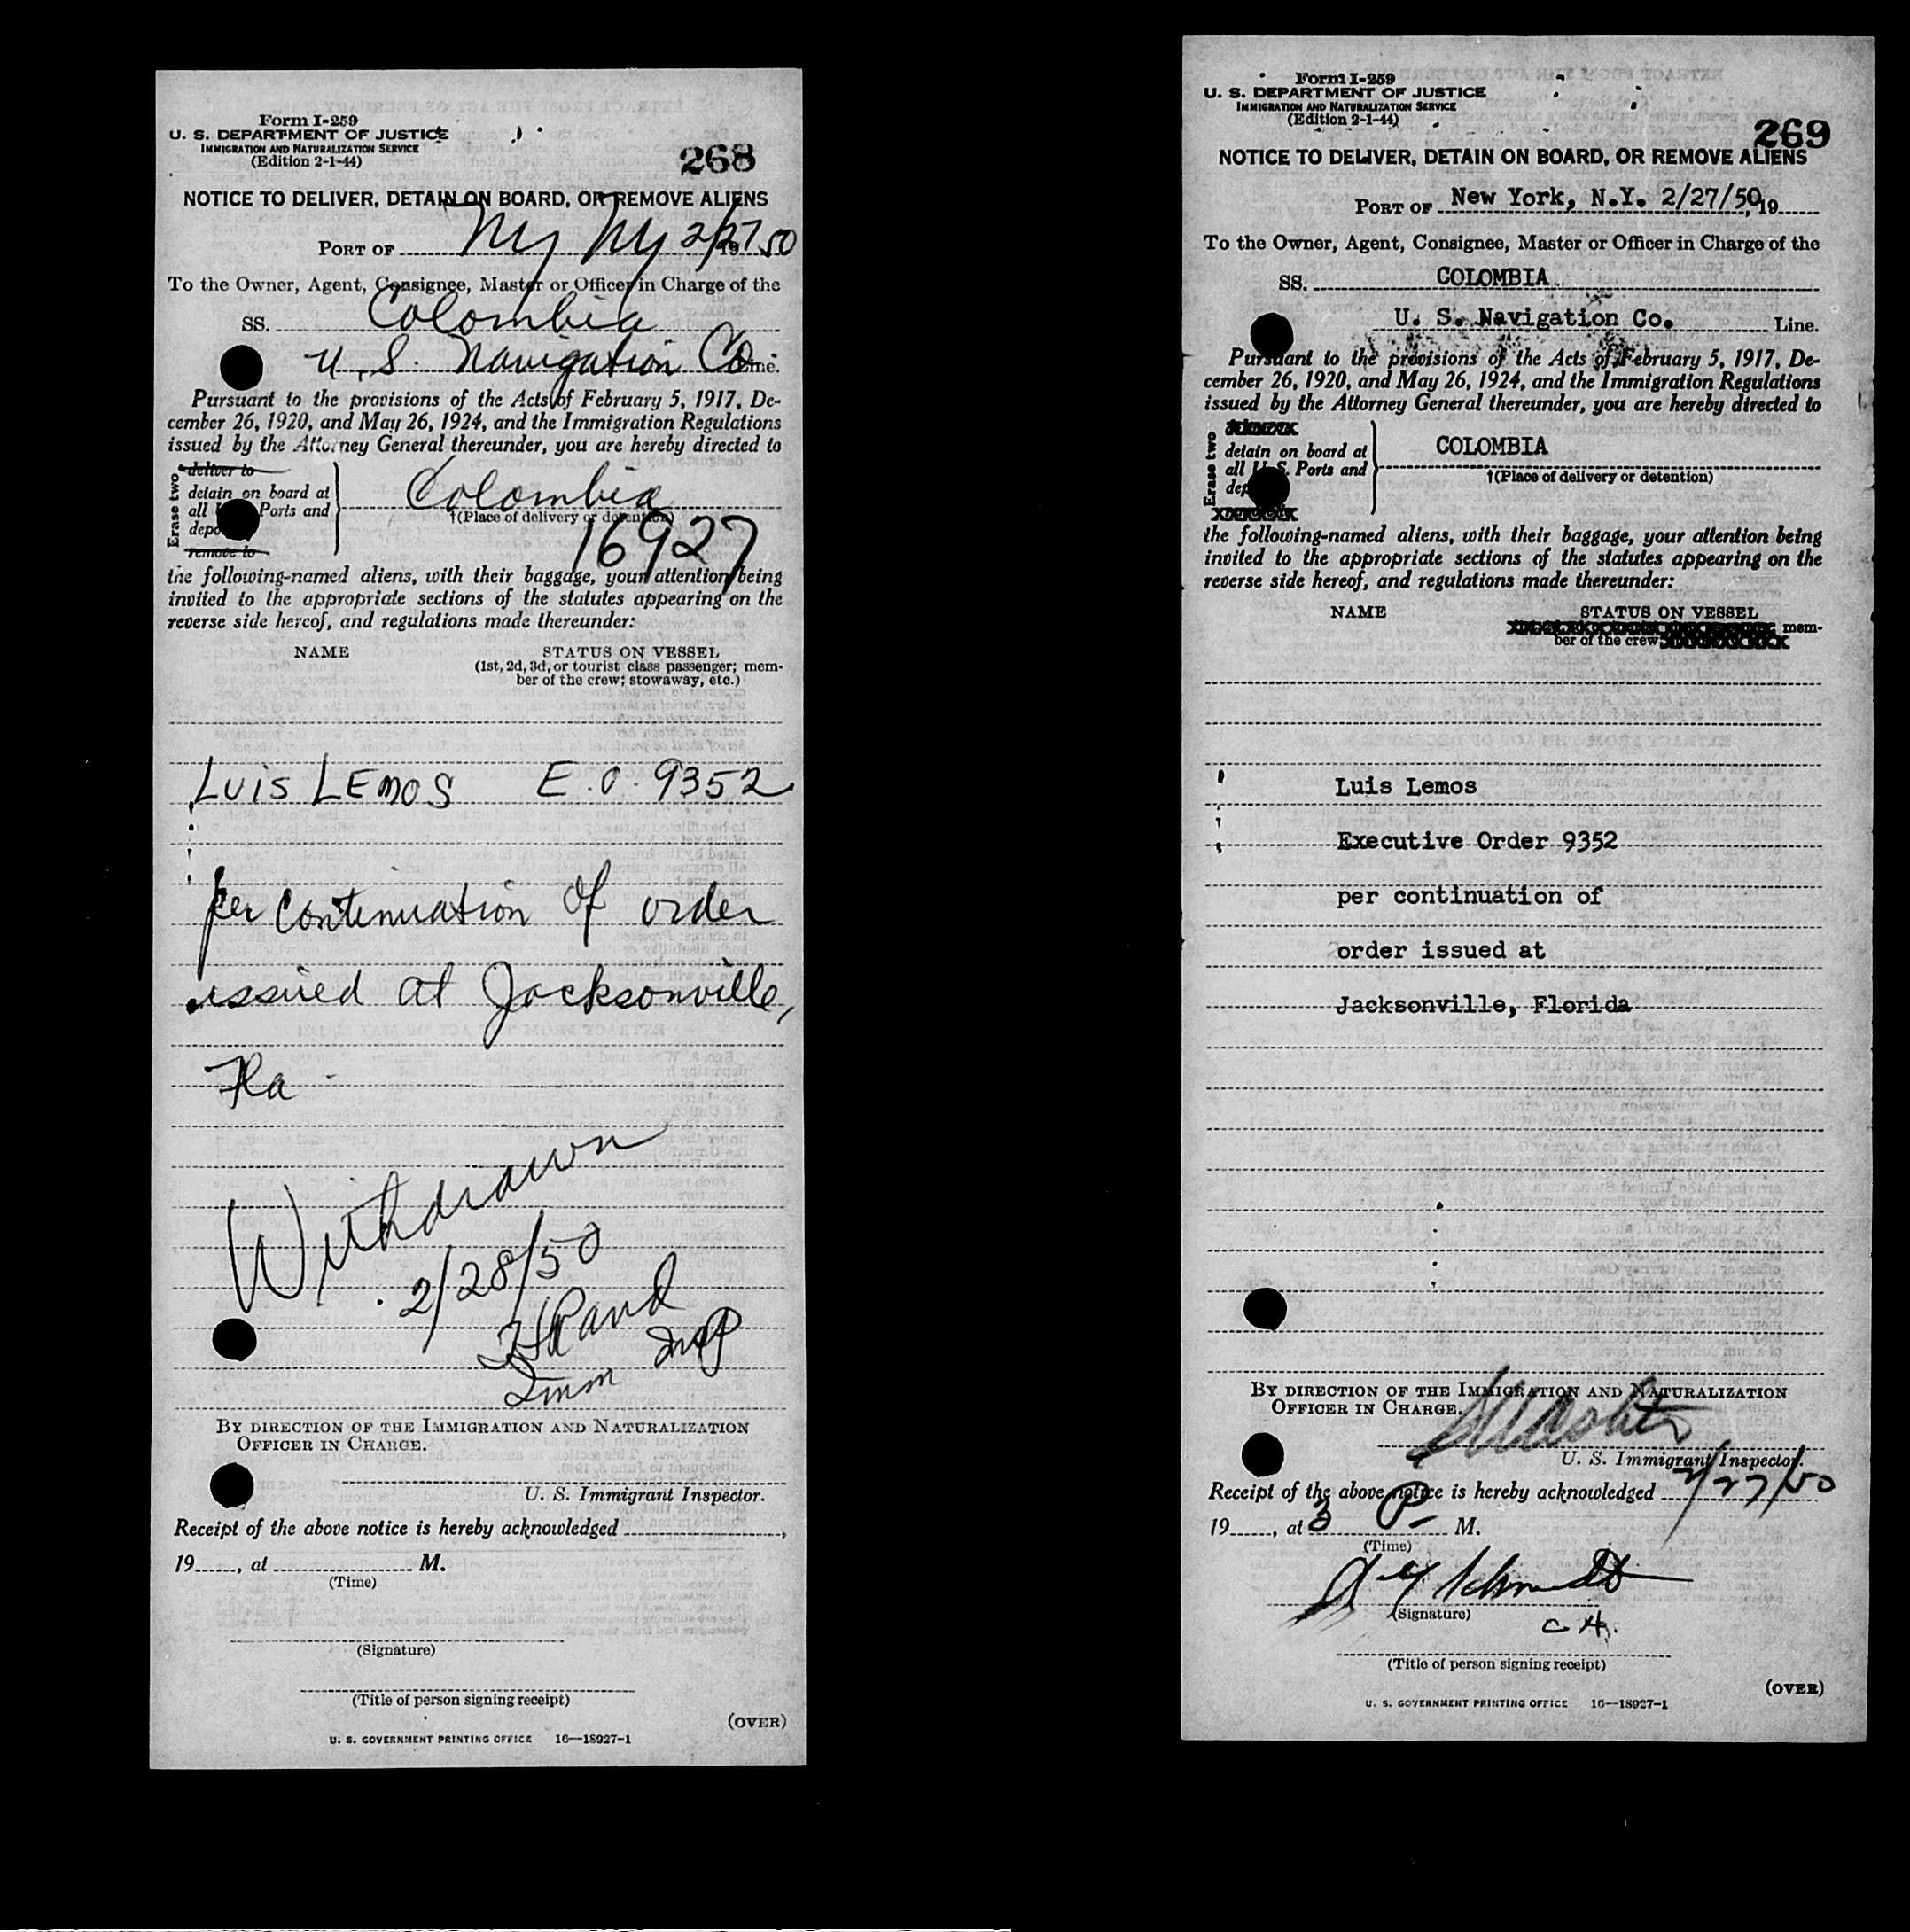 Form I-259
U. S. DEPARTMENT OF JUSTICE
IMMIGRATION AND NATURALIZATION SERVICE
(Edition 2-1-44)
268
NOTICE TO DELIVER, DETAIN ON BOARD, OR REMOVE ALIENS
PORT OF NY NY 2/27 1950
To the Owner, Agent, Consignee, Master or Officer in Charge of the
SS. Colombia
U.S. Navigation Co. Line.
Pursuant to the provisions of the Acts of February 5, 1917, De-
cember 26, 1920, and May 26, 1924, and the Immigration Regulations
issued by the Attorney General thereunder, you are hereby directed to
Erase two
deliver to
detain on board at
all Ports and
remove to
Colombia
†(Place of delivery or detention)
16927
the following-named aliens, with their baggage, your attention being
invited to the appropriate sections of the statutes appearing on the
reverse side hereof, and regulations made thereunder:
NAME STATUS ON VESSEL
(1st, 2d, 3d, or tourist class passenger; mem-
ber of the crew; stowaway, etc.)
LUIS LEMOS E.O. 9352
per continuation of order
issued at Jacksonville,
Fla
Withdrawn
2/28/50
Imm Insp
BY DIRECTION OF THE IMMIGRATION AND NATURALIZATION
OFFICER IN CHARGE.
U. S. Immigrant Inspector.
Receipt of the above notice is hereby acknowledged ,
19 , at M.
(Time)
(Signature)
(Title of person signing receipt)
(OVER)
U. S. GOVERNMENT PRINTING OFFICE 16—18927-1
Form I-259
U. S. DEPARTMENT OF JUSTICE
IMMIGRATION AND NATURALIZATION SERVICE
(Edition 2-1-44)
269
NOTICE TO DELIVER, DETAIN ON BOARD, OR REMOVE ALIENS
PORT OF New York, N.Y. 2/27/50, 19
To the Owner, Agent, Consignee, Master or Officer in Charge of the
SS. COLOMBIA
U. S. Navigation Co. Line.
Pursuant to the provisions of the Acts of February 5, 1917, De-
cember 26, 1920, and May 26, 1924, and the Immigration Regulations
issued by the Attorney General thereunder, you are hereby directed to
Erase two
detain on board at
all U.S. Ports and
COLOMBIA
†(Place of delivery or detention)
the following-named aliens, with their baggage, your attention being
invited to the appropriate sections of the statutes appearing on the
reverse side hereof, and regulations made thereunder:
NAME STATUS ON VESSEL
mem-
ber of the crew
Luis Lemos
Executive Order 9352
per continuation of
order issued at
Jacksonville, Florida
BY DIRECTION OF THE IMMIGRATION AND NATURALIZATION
OFFICER IN CHARGE.
U. S. Immigrant Inspector.
Receipt of the above notice is hereby acknowledged 2/27/50
19 , at 3 P M.
(Time)
Schmidt
(Signature)
(Title of person signing receipt)
(OVER)
U. S. GOVERNMENT PRINTING OFFICE 16—18927-1